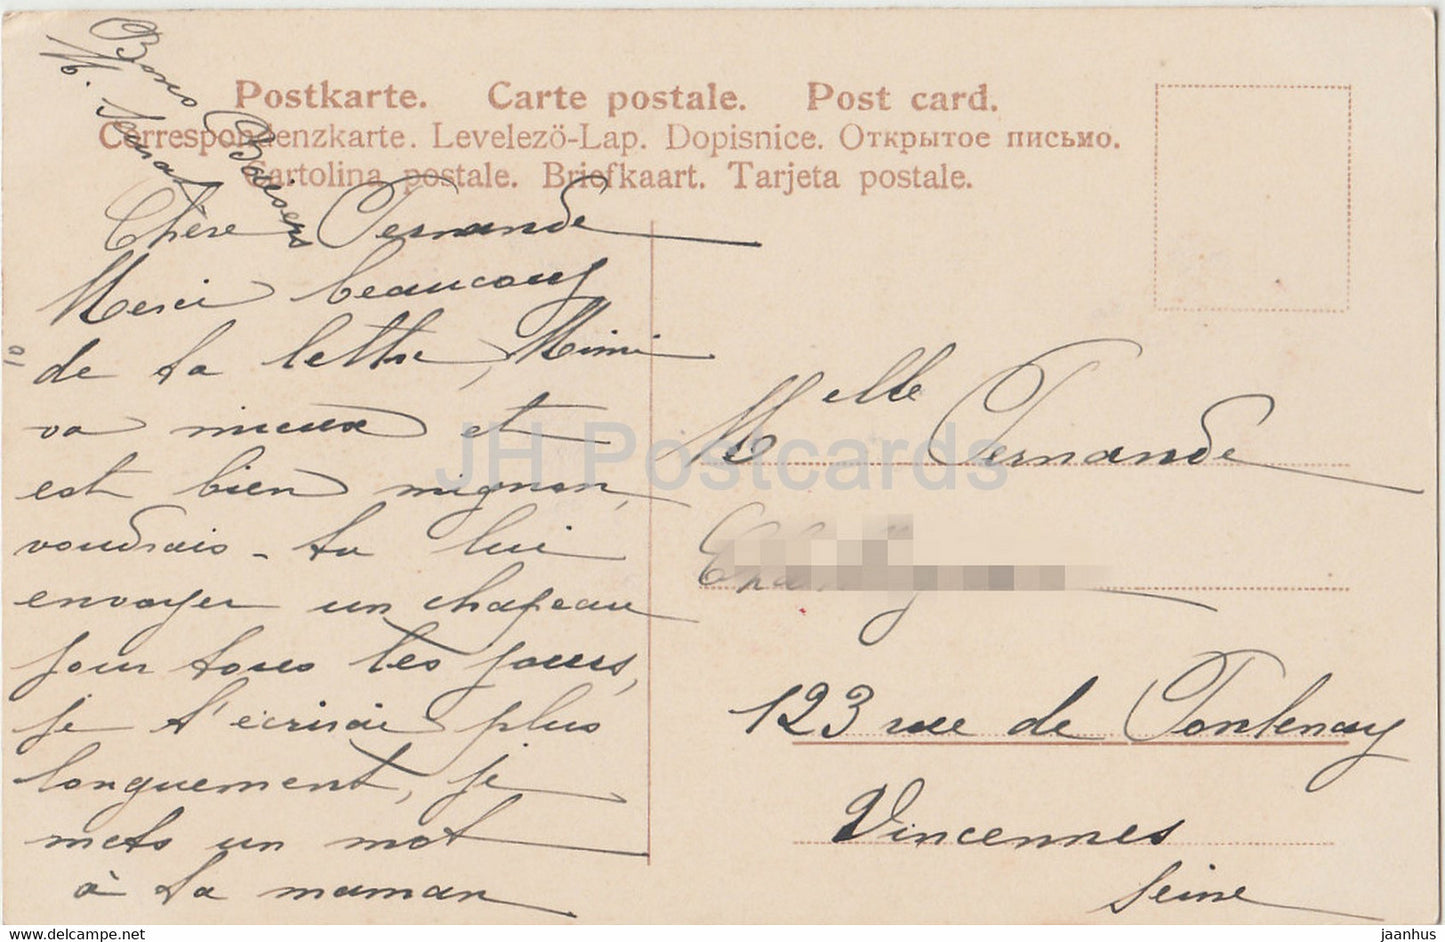 Bons Baisers
M.
Postkarte. Carte postale. Post card.
Correspondenzkarte. Levelezö-Lap. Dopisnice. Открытое письмо.
Cartolina postale. Briefkaart. Tarjeta postale.
Chère Fernande
Merci beaucoup
de ta lettre, Mimi
va mieux et
est bien mignon,
voudrais-tu lui
envoyer un chapeau
pour tous les jours,
je t'écrirai plus
longuement, je
mets un mot
à ta maman
10
Melle Fernande
123 rue de Fontenay
Vincennes
Seine
JH Postcards
www.delcampe.net
jaanhus